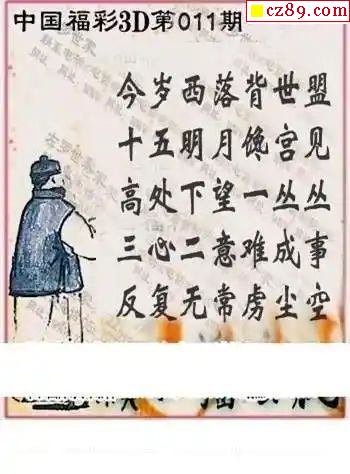 中国福彩3D第011期
cz89.com
今岁西落背世盟
十五明月馋宫见
高处下望一丛丛
三心二意难成事
反复无常虏尘空